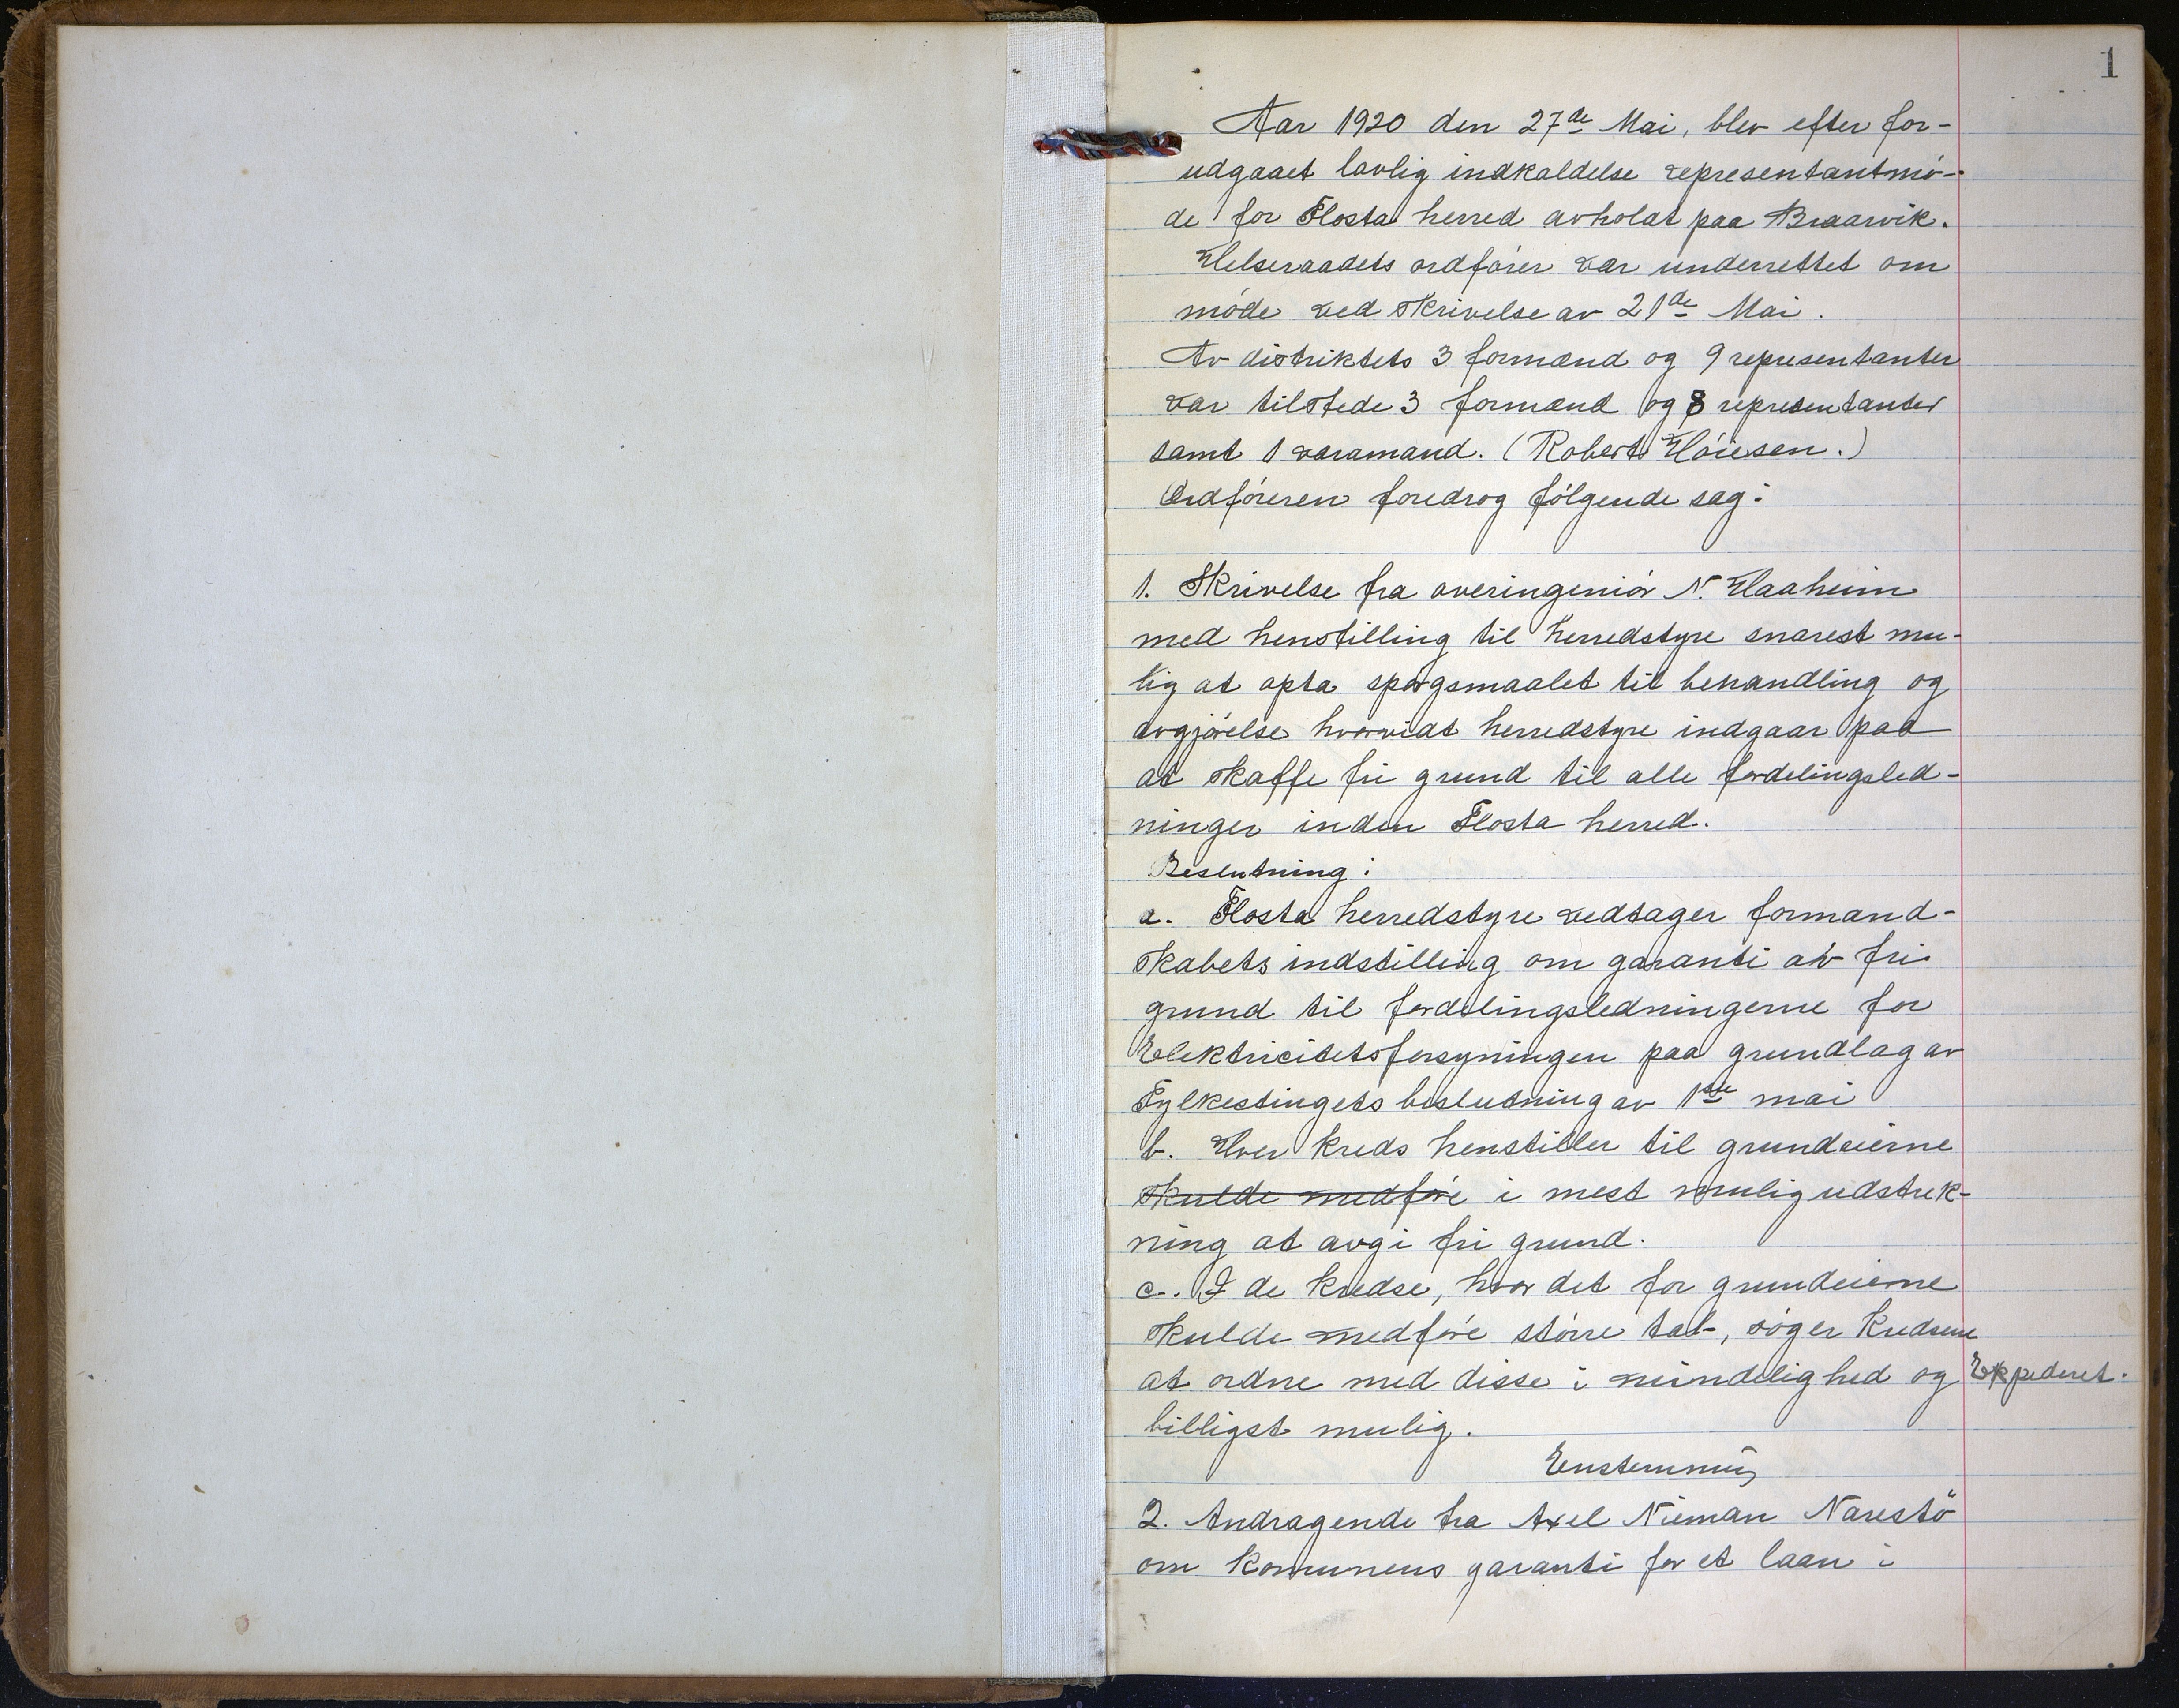 1
Aar 1920 den 27de Mai, blev efter for-
udgaaet lovlig indkaldelse representantmö-
de for Flosta herred avholdt paa Braarvik.
Helseraadets ordförer var underrettet om
möde ved skrivelse av 21de Mai.
Av distriktets 3 formænd og 9 representanter
var tilstede 3 formænd og 8 representanter
samt 1 varamand. (Robert Höiesen.)
Ordföreren foredrog fölgende sag:
1. Skrivelse fra overingeniör N. Haaheim
med henstilling til herredstyre snarest mu-
lig at opta spörgsmaalet til behandling og
avgjörelse hvorvidt herredstyre indgaar paa
at skaffe fri grund til alle fordelingsled-
ninger inden Flosta herred.
Beslutning:
a. Flosta herredstyre vedtager formand-
skabets indstilling om garanti av fri
grund til fordelingsledningerne for
Elektricitetsforsyningen paa grundlag av
Fylkestingets beslutning av 1ste mai
b. Hver kreds henstiller til grundeierne
skulde medföre i mest mulig udstrek-
ning at avgi fri grund.
c. I de kredse, hvor det for grundeierne
skulde medföre större tab, söger kredsene
at ordne med disse i mindelighed og Expederet.
billigst mulig.
Enstemmig
2. Andragende fra Axel Nieman Narestö
om komunens garanti for et laan i